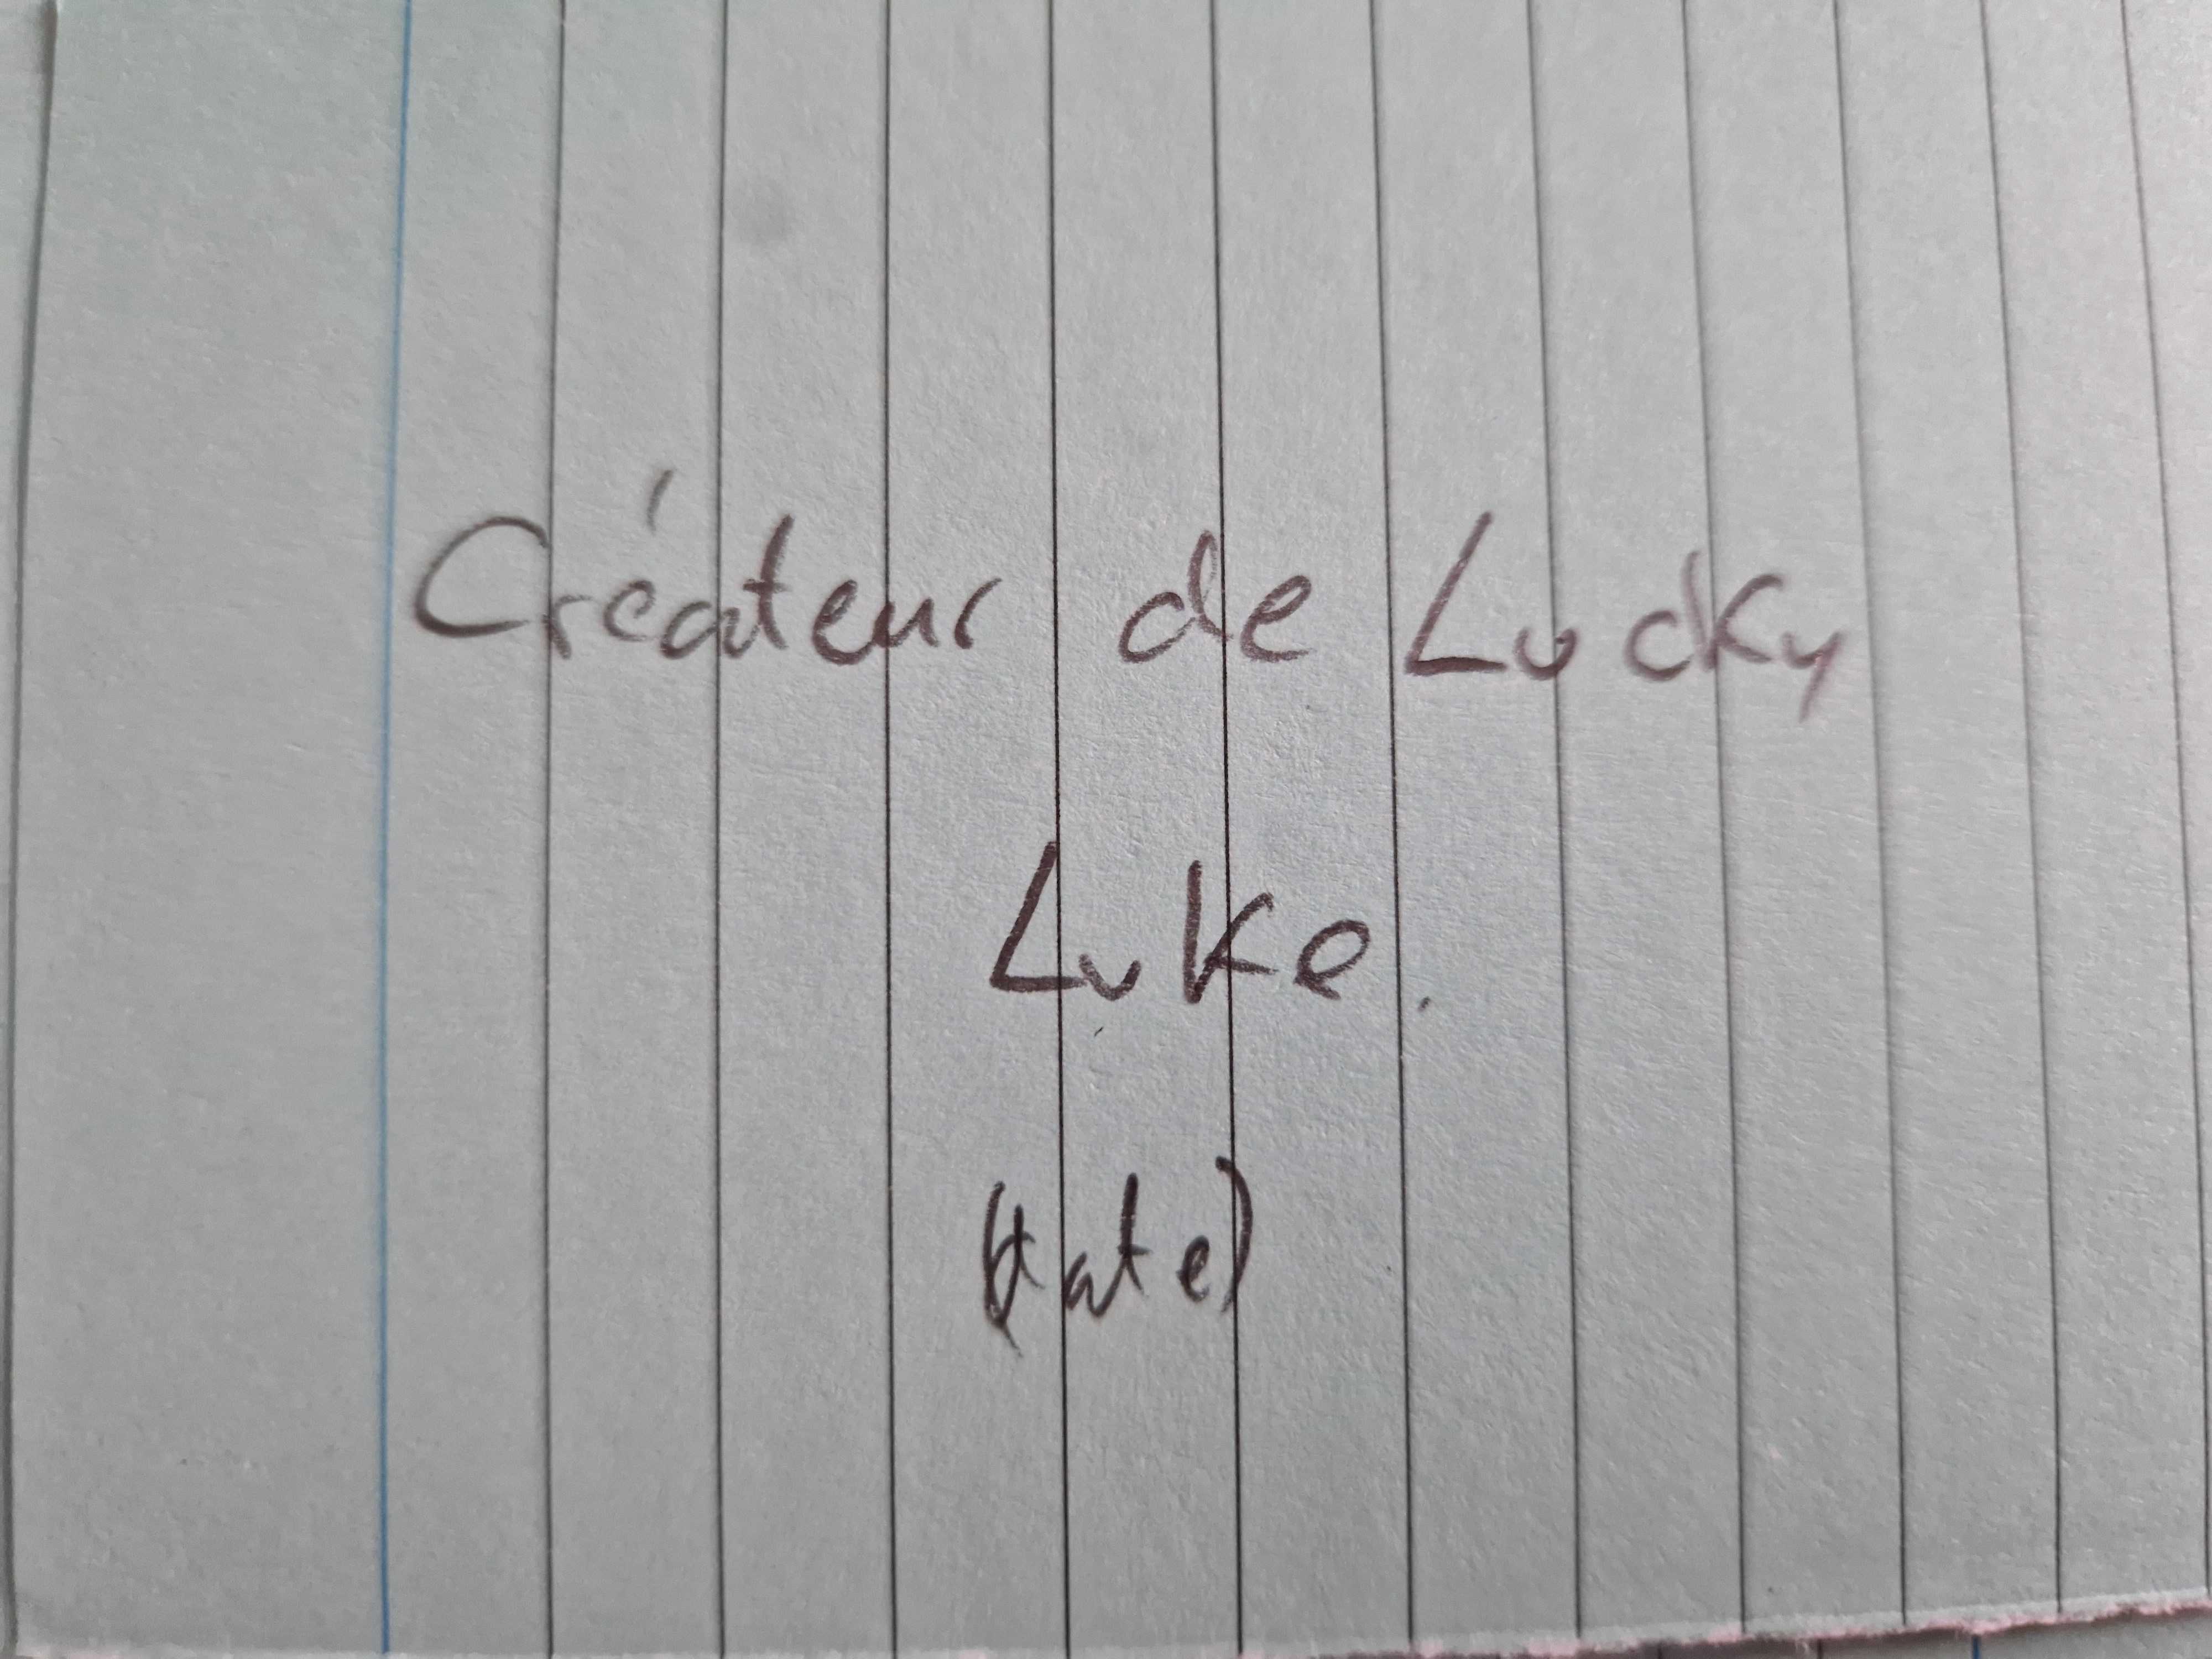 Créateur de Lucky
Luke.
(tate)